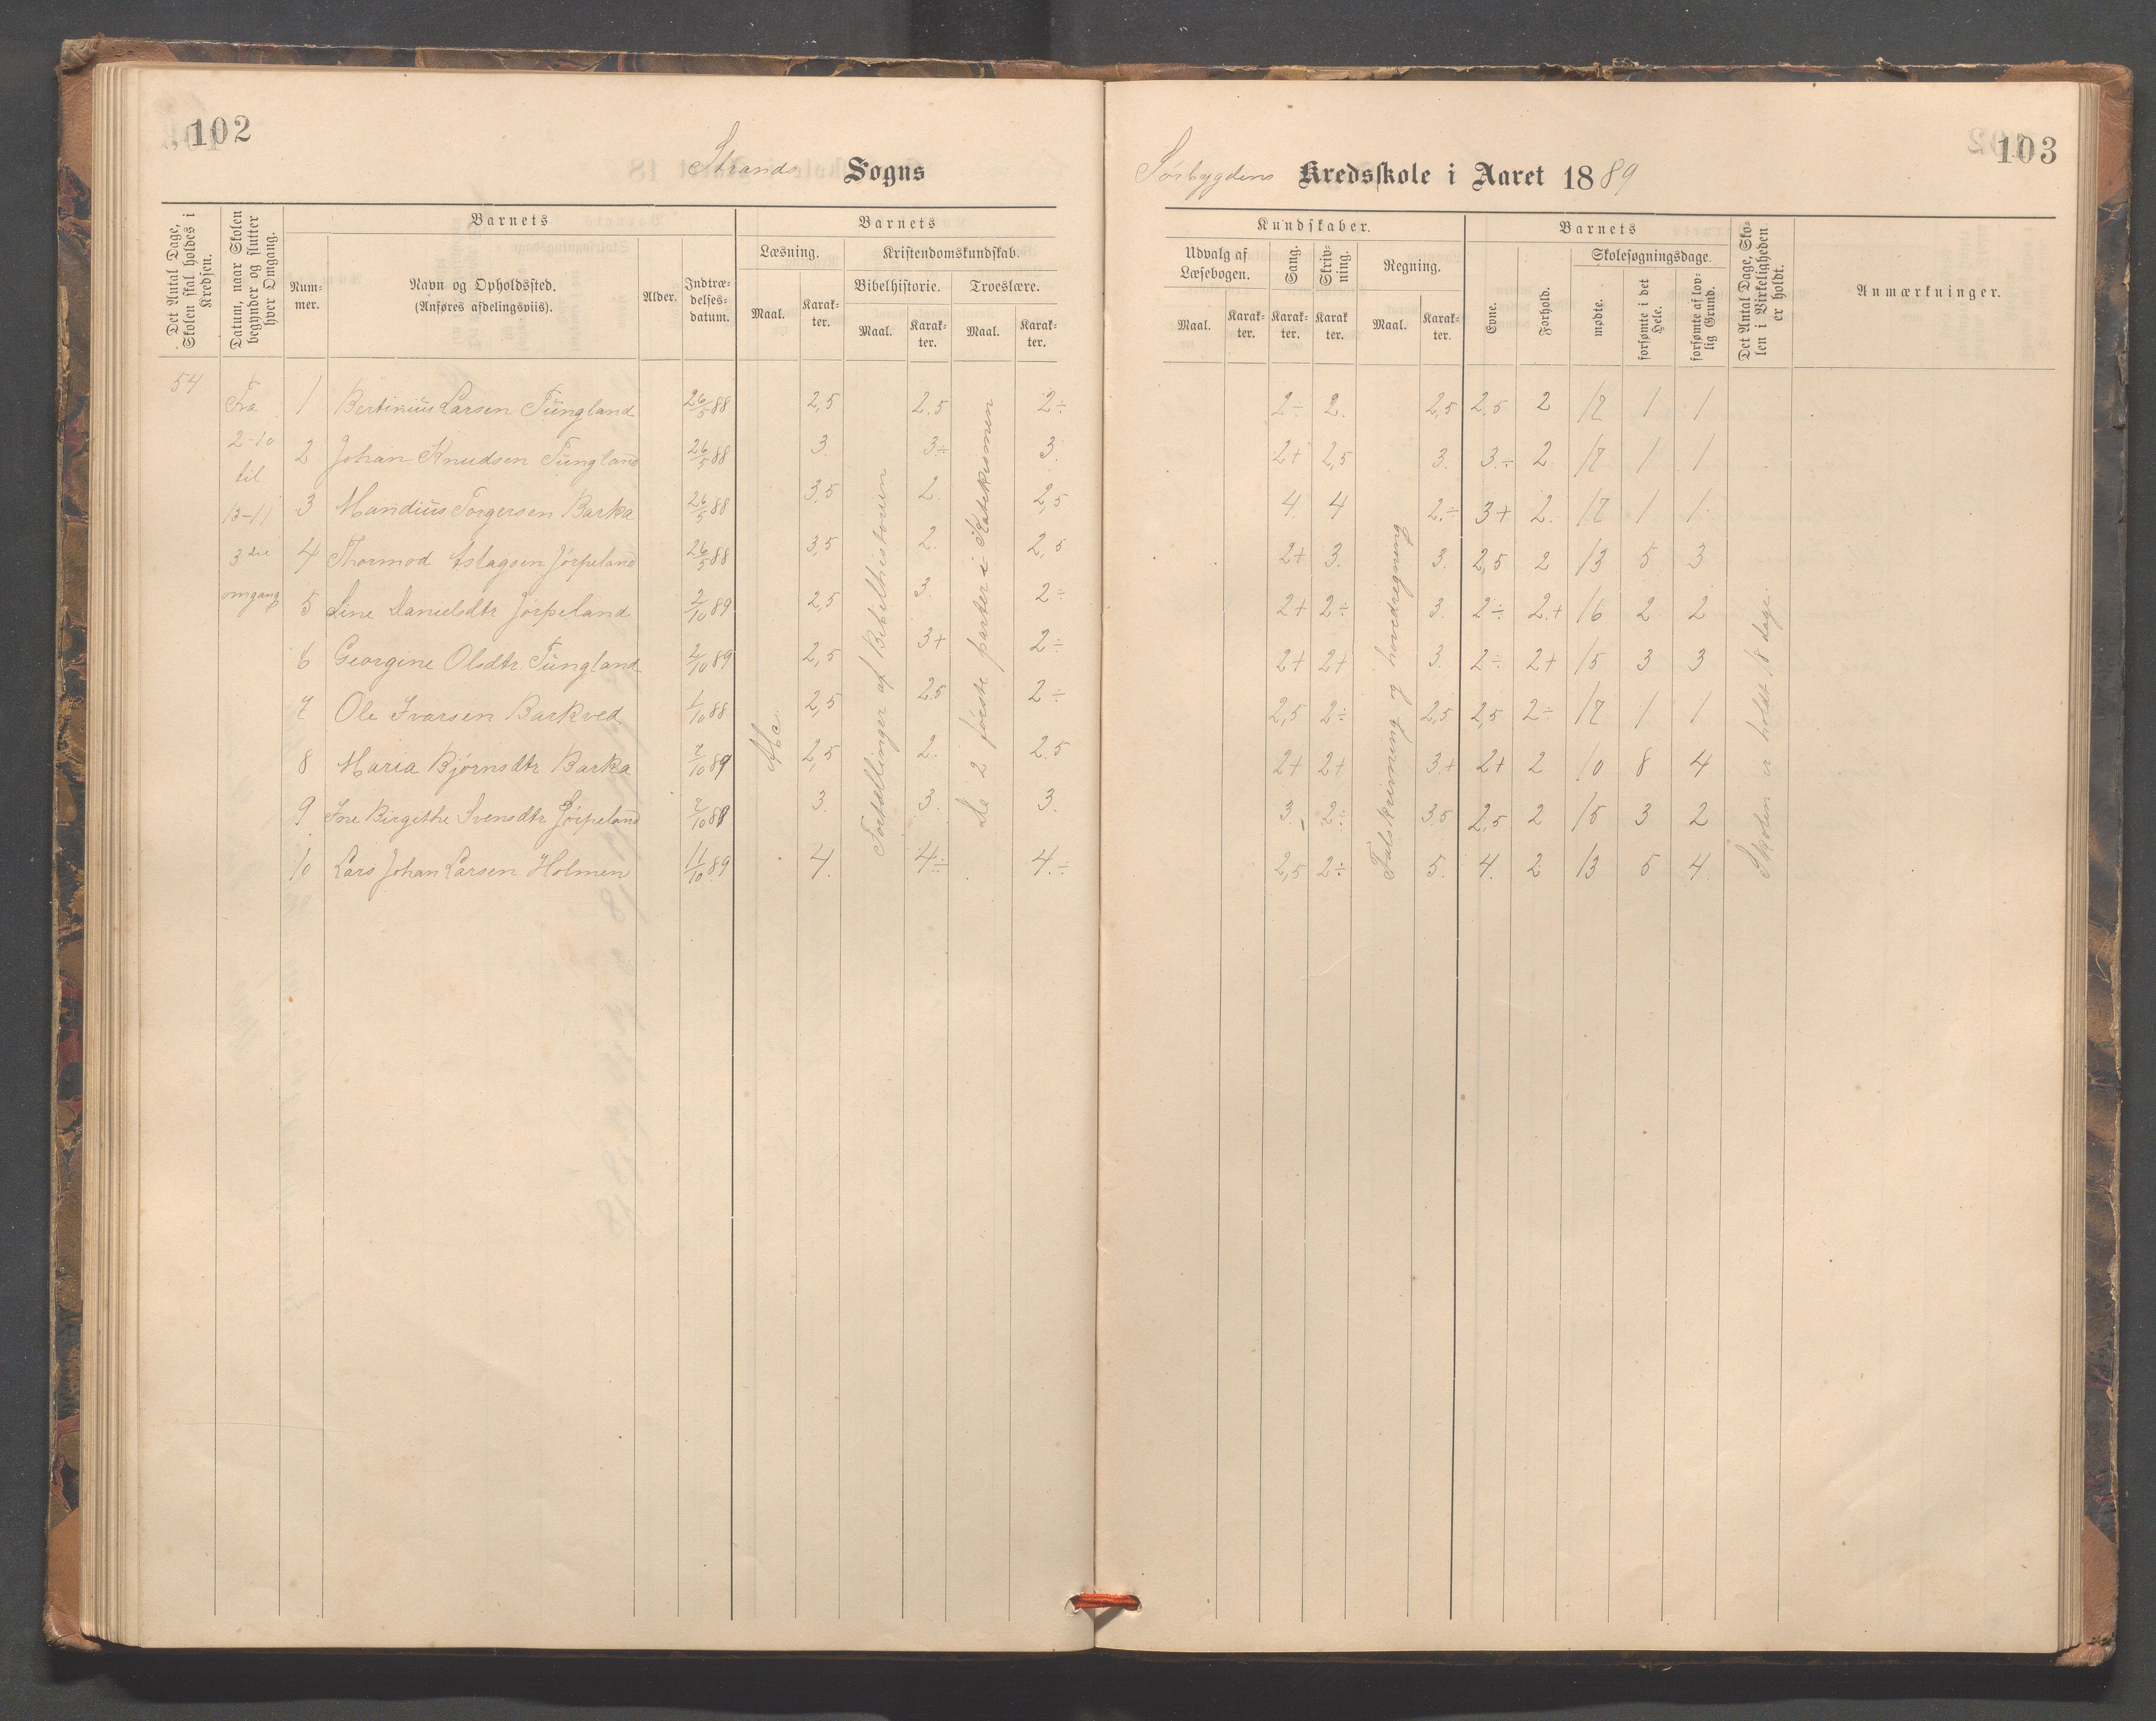 102
Strands Sogns
Det Antal Dage, Skolen skal holdes i Kredsen.
Datum, naar Skolen begynder og slutter hver Omgang.
Barnets
Nummer.
Navn og Opholdssted.
(Anføres afdelingsviis).
Alder.
Indtrædelsesdatum.
Barnets
Læsning.
Maal.
Karakter.
Kristendomskundskab.
Bibelhistorie.
Maal.
Karakter.
Troeslære.
Maal.
Karakter.
54
Fra
2-10
til
13-11
3die
omgang
1 Bertinius Larsen Tungland 26/5 88 2,5 2.5 2÷
2 Johan Knudsen Tungland 26/5 88 3. 3÷ 3.
3 Mandius Torgersen Barka 26/5 88 3,5 2. 2,5
4 Thormod Aslagsen Jørpeland 26/5 88 3,5 2. 2,5
5 Line Danielsdtr Jørpeland 2/10 89 2,5 3. 2÷
6 Georgine Olsdtr. Tungland 2/10 89 2,5 3+ 2÷
7 Ole Ivarsen Barkved 1/10 88 2,5 2.5 2÷
8 Maria Bjørnsdtr Barka 2/10 89 2,5 2. 2.5
9 Ine Birgithe Svensdtr Jørpeland 2/10 88 3. 3. 3.
10 Lars Johan Larsen Holmen 11/10 89 4. 4÷ 4.÷
Fortællinger af Bibelhistorien
De 2 første parter i Katekismen
103
Sørbygdens Kredsskole i Aaret 1889
Kundskaber.
Udvalg af Læsebogen.
Maal.
Karakter.
Sang.
Karakter.
Skrivning.
Karakter.
Regning.
Maal.
Karakter.
Barnets
Evne.
Forhold.
Skolesøgningsdage.
mødte.
forsømte i det Hele.
forsømte af lovlig Grund.
Det Antal Dage, Skolen i Virkeligheden er holdt.
Anmærkninger.
2÷ 2. 2,5 2,5 2 17 1 1
2+ 2,5 3. 3÷ 2. 17 1 1
4. 4 2.÷ 3+ 2. 17 1 1
2+ 3. 3. 2,5 2 13 5 3
2+ 2÷ 3. 2÷ 2.+ 16 2 2
2+ 2+ 3. 2÷ 2+ 15 3 3
2,5 2÷ 2,5 2,5 2÷ 17 1 1
2+ 2+ 3.+ 2+ 2 10 8 4
3. 2÷ 3.5 2,5 2 15 3 2
2,5 2÷ 5. 4. 2 13 5 4
Talskrivning og hovedregning
Skolen er holdt 18 dage.